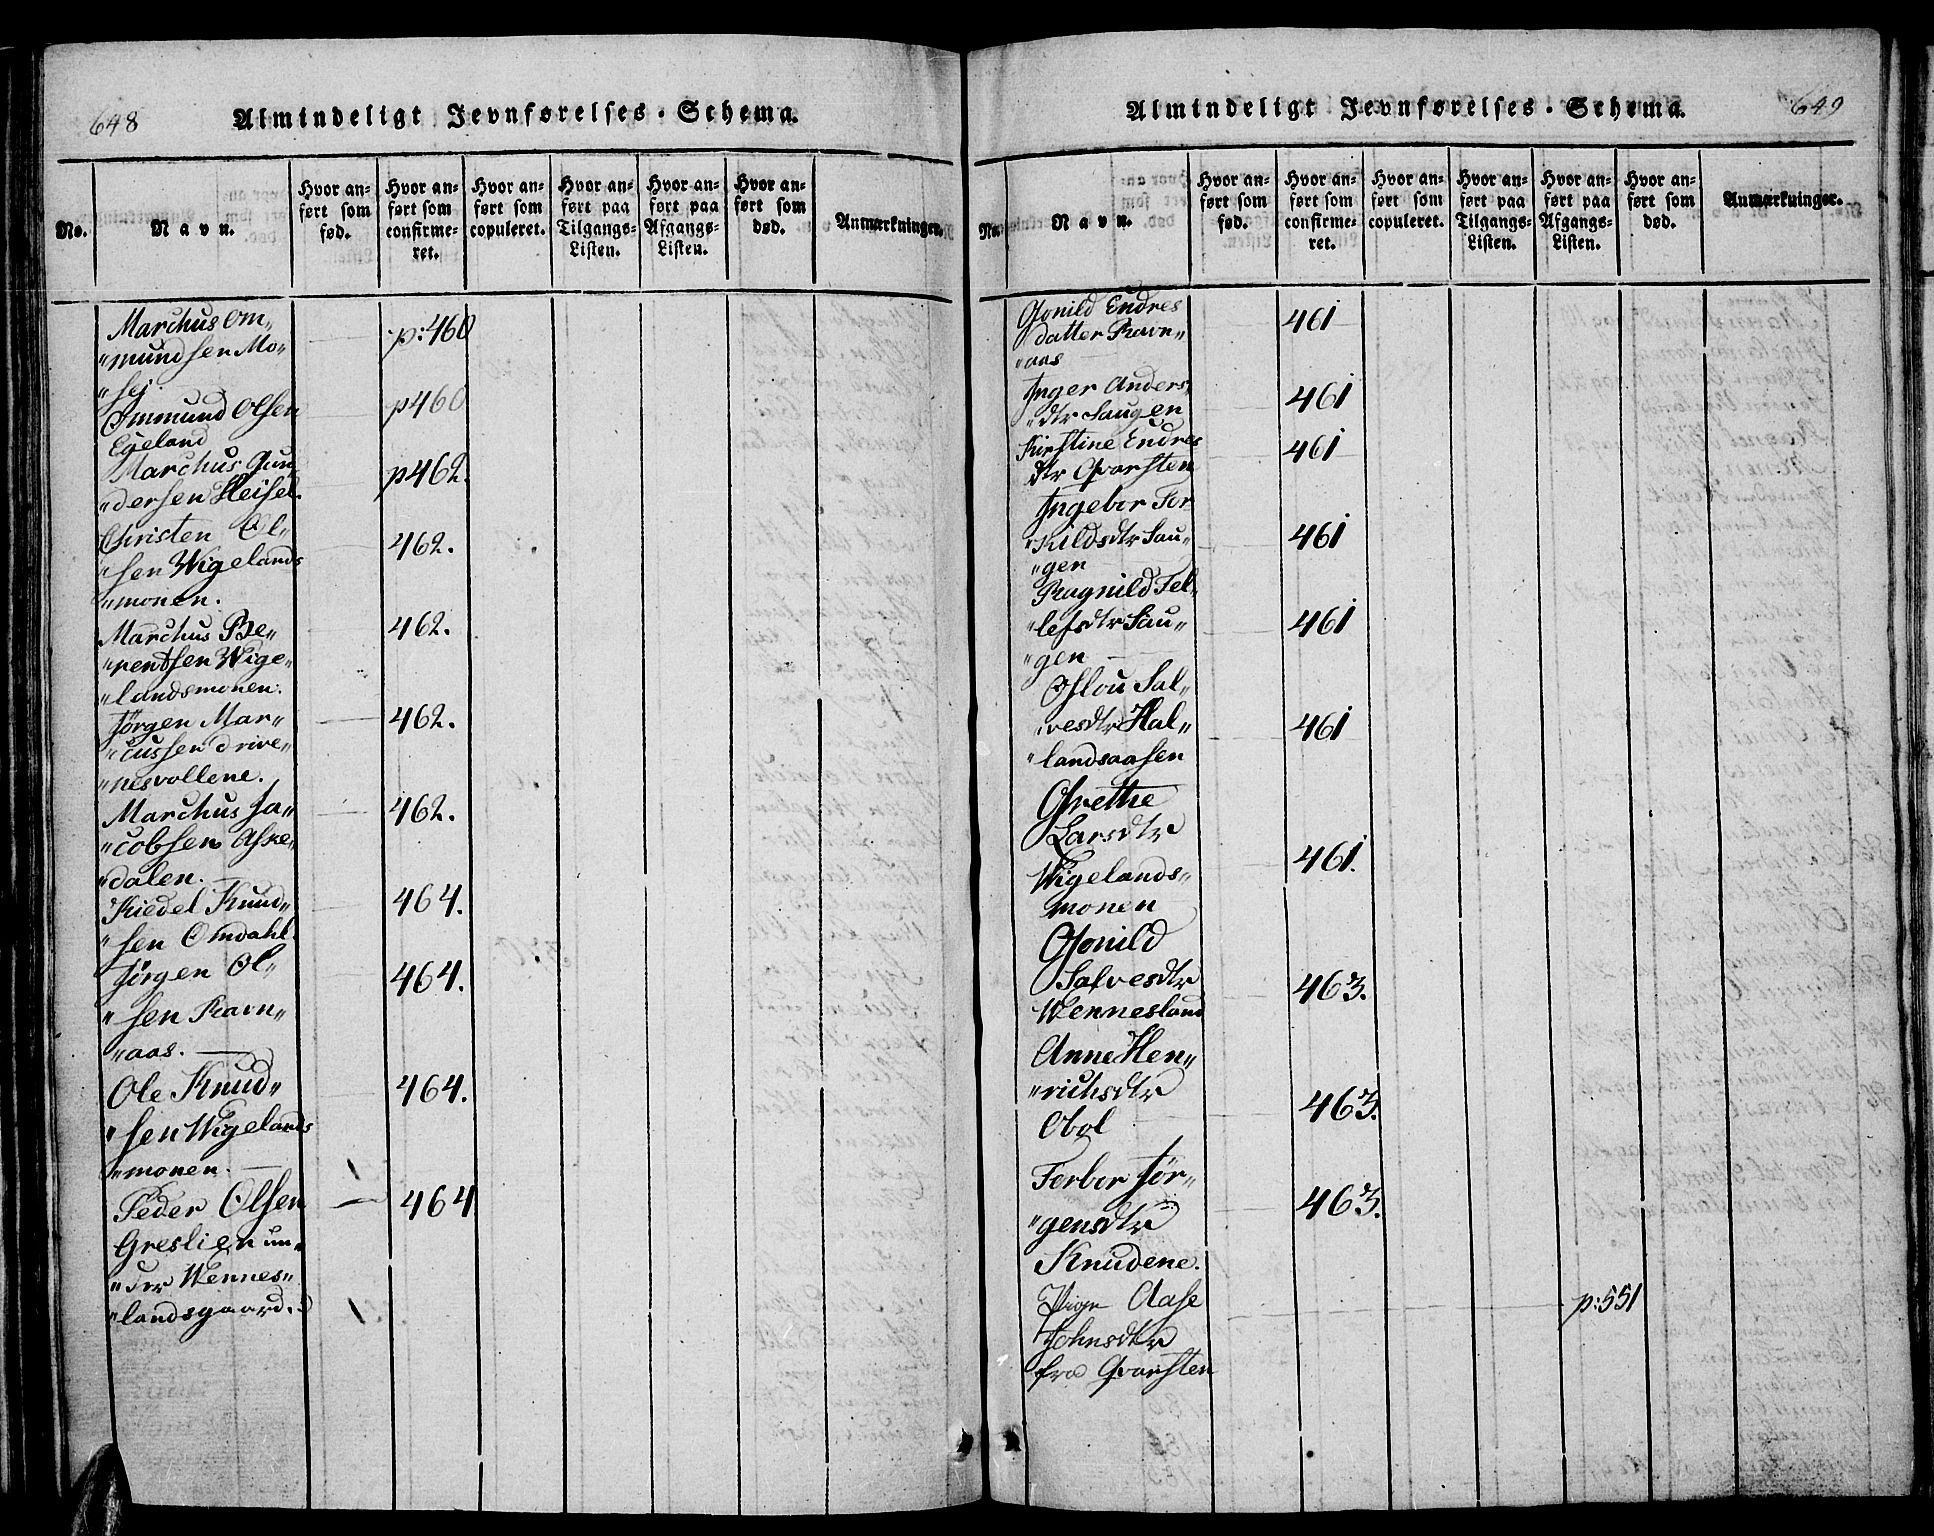 648
Almindeligt Jevnførelses-Schema.
No.
Navn.
Hvor an-
ført som
fød.
Hvor an-
ført som
confirme-
ret.
Hvor an-
ført som
copuleret.
Hvor an-
ført paa
Tilgangs-
Listen.
Hvor an-
ført paa
Afgangs-
Listen.
Hvor an-
ført som
død.
Anmærkninger.
Marchus Om„
„mundsen Mo„ p:460
„sej.
Ommund Olsen p460
Egeland
Marchus Gun„ p462.
„dersen Heisel.
Christen Ol„ 462.
„sen Wigelands
„monen.
Marchus Be„ 462.
„rentsen Wige„
„landsmonen.
Jørgen Mar„ 462.
„cussen Drive„
„nesvollene.
Marchus Ja„ 462.
„cobsen Aske„
„dalen.
Kiedel Knud„ 464.
„sen Omdahl.
Jørgen Ol„ 464.
„sen Ravn„
„aas.
Ole Knud„ 464.
„sen Wigelands
„monen.
Peder Olsen 464
Greslien un„
„der Wennes„
„landsgaard.
Almindeligt Jevnførelses-Schema.
649
No.
Navn.
Hvor an-
ført som
fød.
Hvor an-
ført som
confirme-
ret.
Hvor an-
ført som
copuleret.
Hvor an-
ført paa
Tilgangs-
Listen.
Hvor an-
ført paa
Afgangs-
Listen.
Hvor an-
ført som
død.
Anmærkninger.
Gonild Endres 461
datter Ravn„
„aas
Inger Anders 461
„dtr Haugen
Kirstine Endres 461
dtr Qvarsten
Ingebor Tor
„kildsdtr Hau„ 461
„gen
Ragnild Tel„
„lefsdtr Hau„ 461
„gen
Oslou Sal„
„vesdtr Hal„ 461
„landsaasen
Grethe
Larsdtr
Wigelands„ 461.
monen
Gonild
Salvesdtr 463.
Wennesland
Anne Hen„
„richsdtr
Obol 463.
Terbor Jør„
„gensdtr 463.
Knudene.
Pige Aase p:551
Johnsdtr
fra Qvarsten